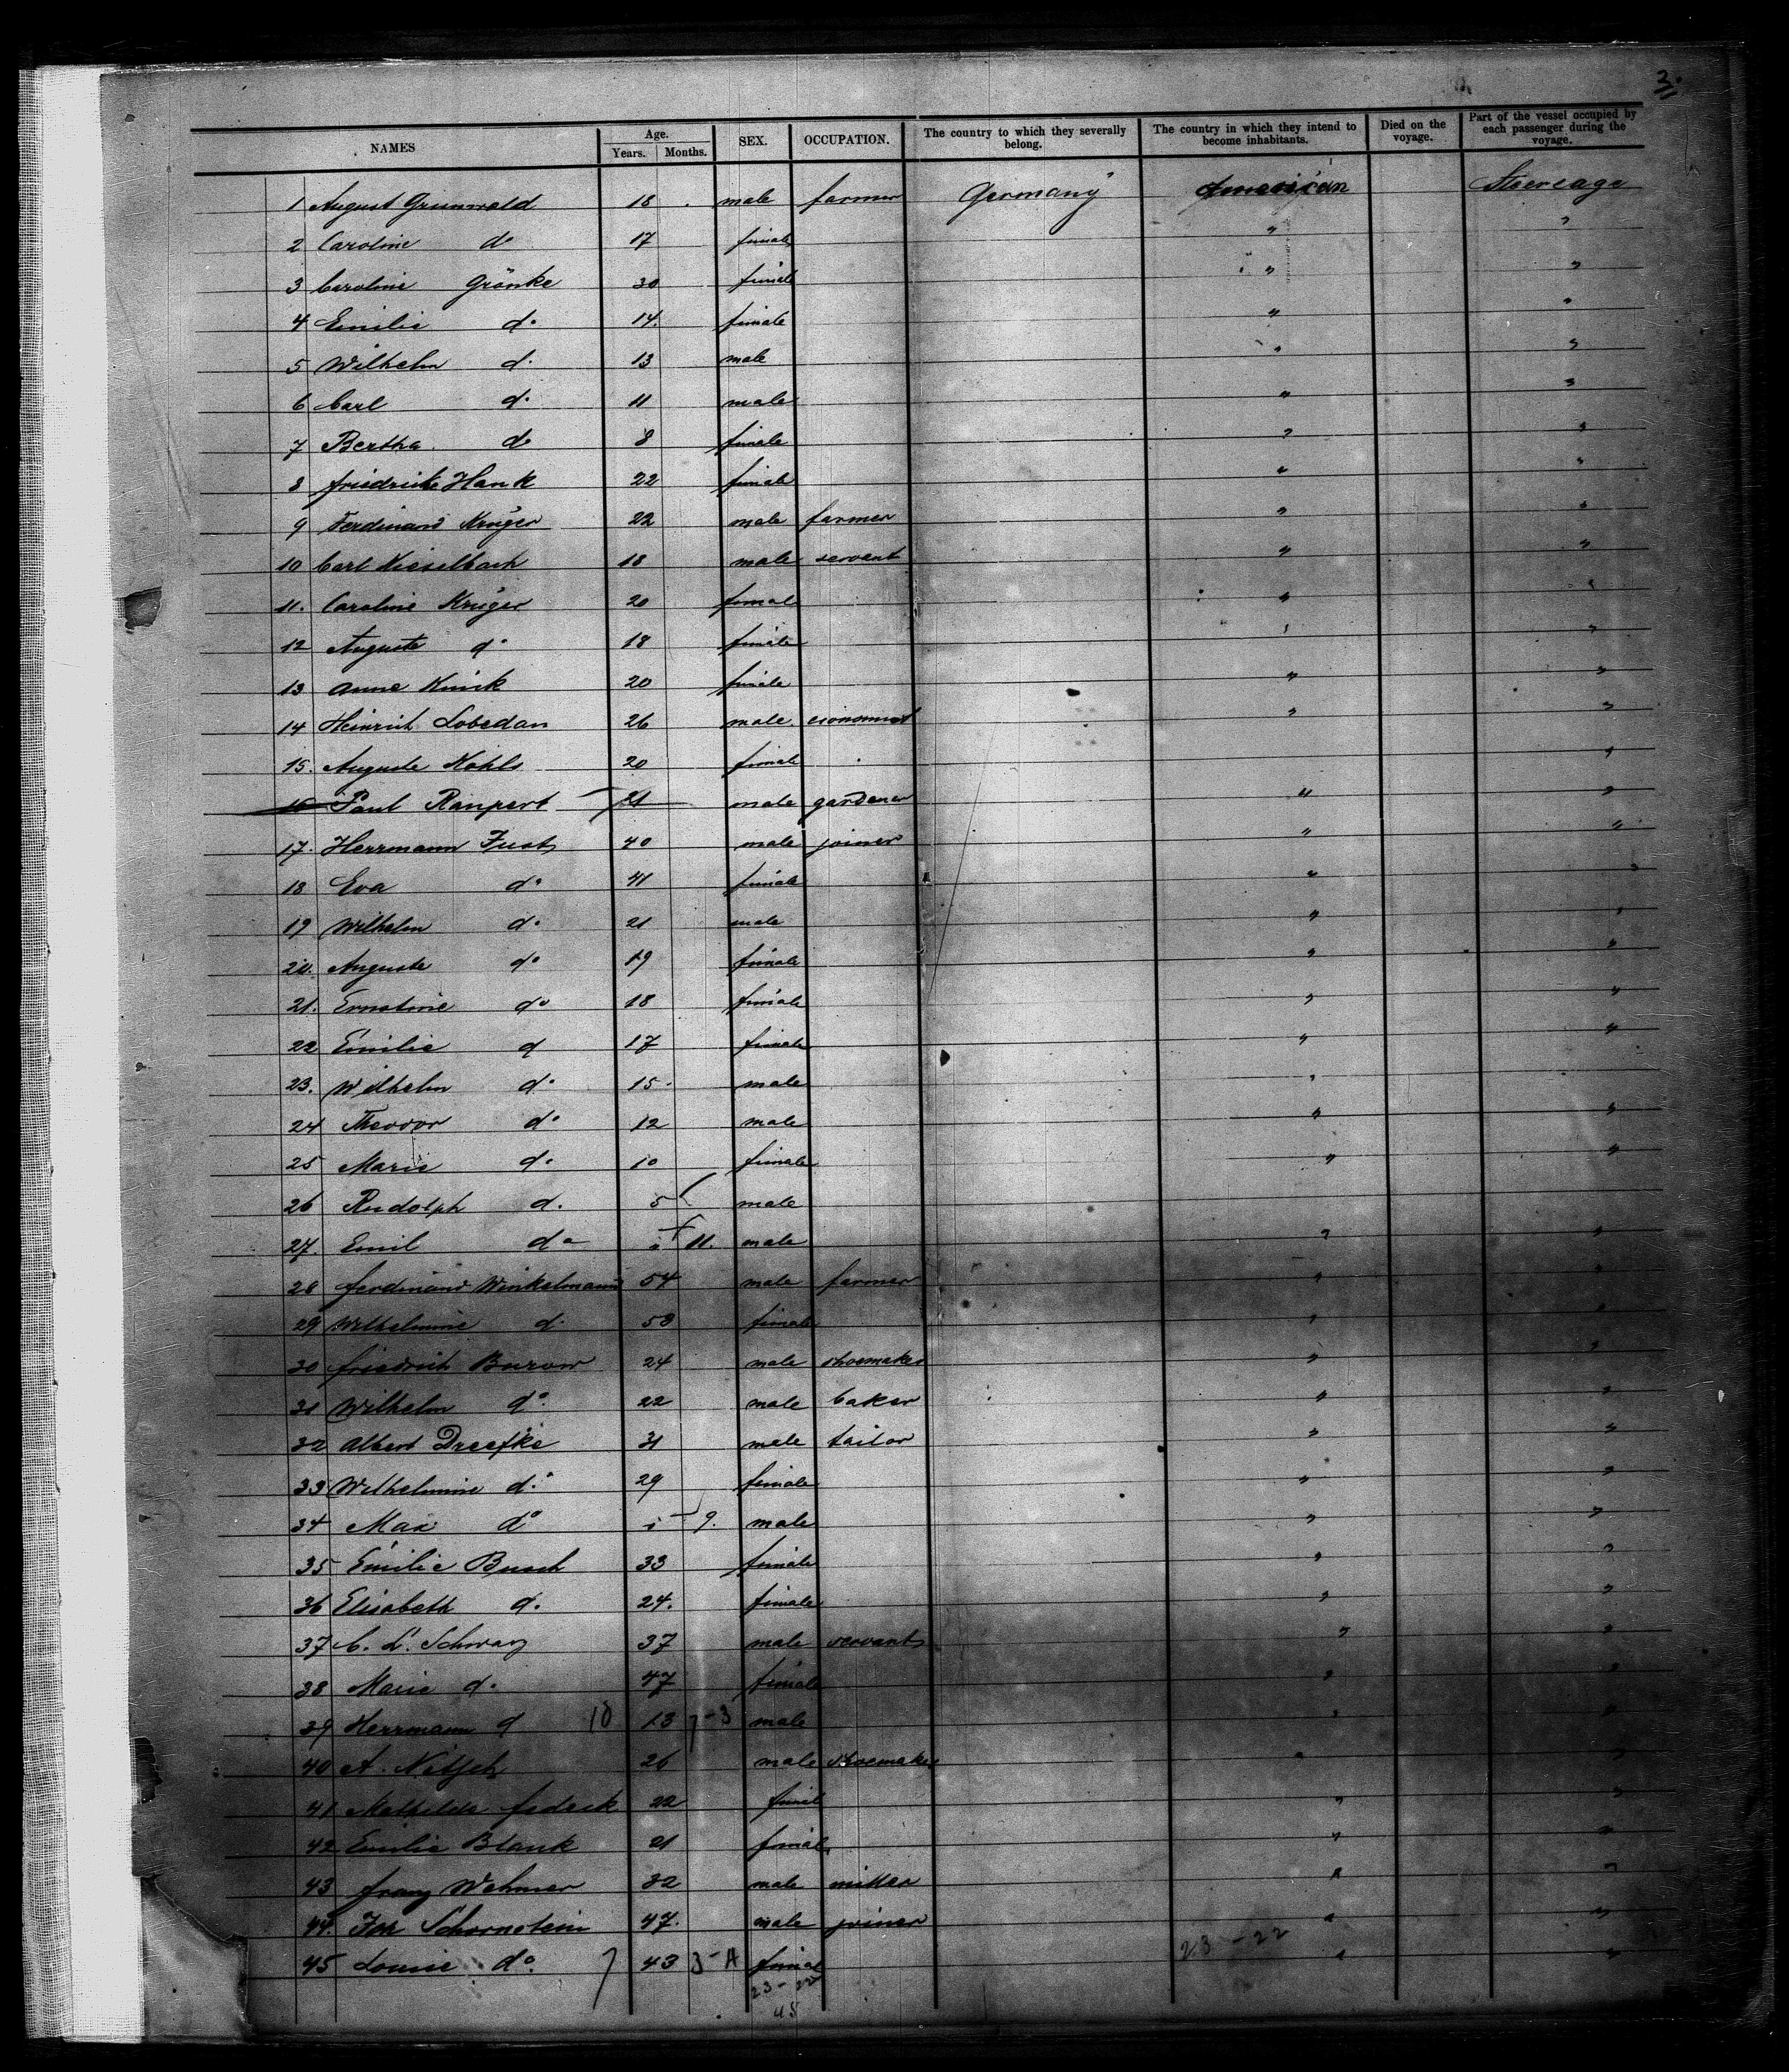 3.
NAMES Age. Years. Months. SEX. OCCUPATION. The country to which they severally belong. The country in which they intend to become inhabitants. Died on the voyage. Part of the vessel occupied by each passenger during the voyage.
1 August Grunwald 18 male farmer Germany American Steerage
2 Caroline do 17 female " "
3 Caroline Grönke 30 female " "
4 Emilie do 14. female " "
5 Wilhelm do 13 male " "
6 Carl do 11 male " "
7 Bertha do 8 female " "
8 friedricke Hank 22 female " "
9 Ferdinand Krüger 22 male farmer " "
10 Carl Kieselbach 18 male servant " "
11. Caroline Krüger 20 female " "
12 Auguste do 18 female " "
13 Anna 20 female " "
14 Heinrich Lobedan 26 male economist " "
15. Auguste Kohls 20 female "
16 Paul Ranpert 21 male gardener " "
17. Herrmann Fust 40 male joiner " "
18 Eva do 41 female " "
19 Wilhelm do 21 male " "
20. Auguste do 19 female " "
21. Ernstine do 18 female " "
22 Emilie d 17 female " "
23. Wilhelm do 15. male "
24 Theodor do 12 male " "
25 Marie do 10 female " "
26 Rudolph d. 5 male
27. Emil do 11. male " "
28 ferdinand Winkelmann 54 male farmer " "
29 Wilhelmine d. 58 female " "
30 friedrich Burow 24 male shoemaker " "
31 Wilhelm do 22 male baker " "
32 Albert Dreefke 31 male tailor " "
33 Wilhelmine do 29 female " "
34 Max do 9. male " "
35 Emilie Busch 33 female " "
36 Elisabeth d. 24. female " "
37 C. L. Schwarz 37 male servant " "
38 Marie d. 47 female " "
39 Herrmann d 10 13 7-3 male " "
40 A. Nitsch 26 male shoemaker " "
41 Mathilde 22 femal " "
42 Emilie Blank 21 female " "
43 franz Wehmer 32 male miller " "
44. Joh Schornstein 47. male joiner " "
45 Louise do. 7 43 3-A femal 23-22 " "
23-22
45